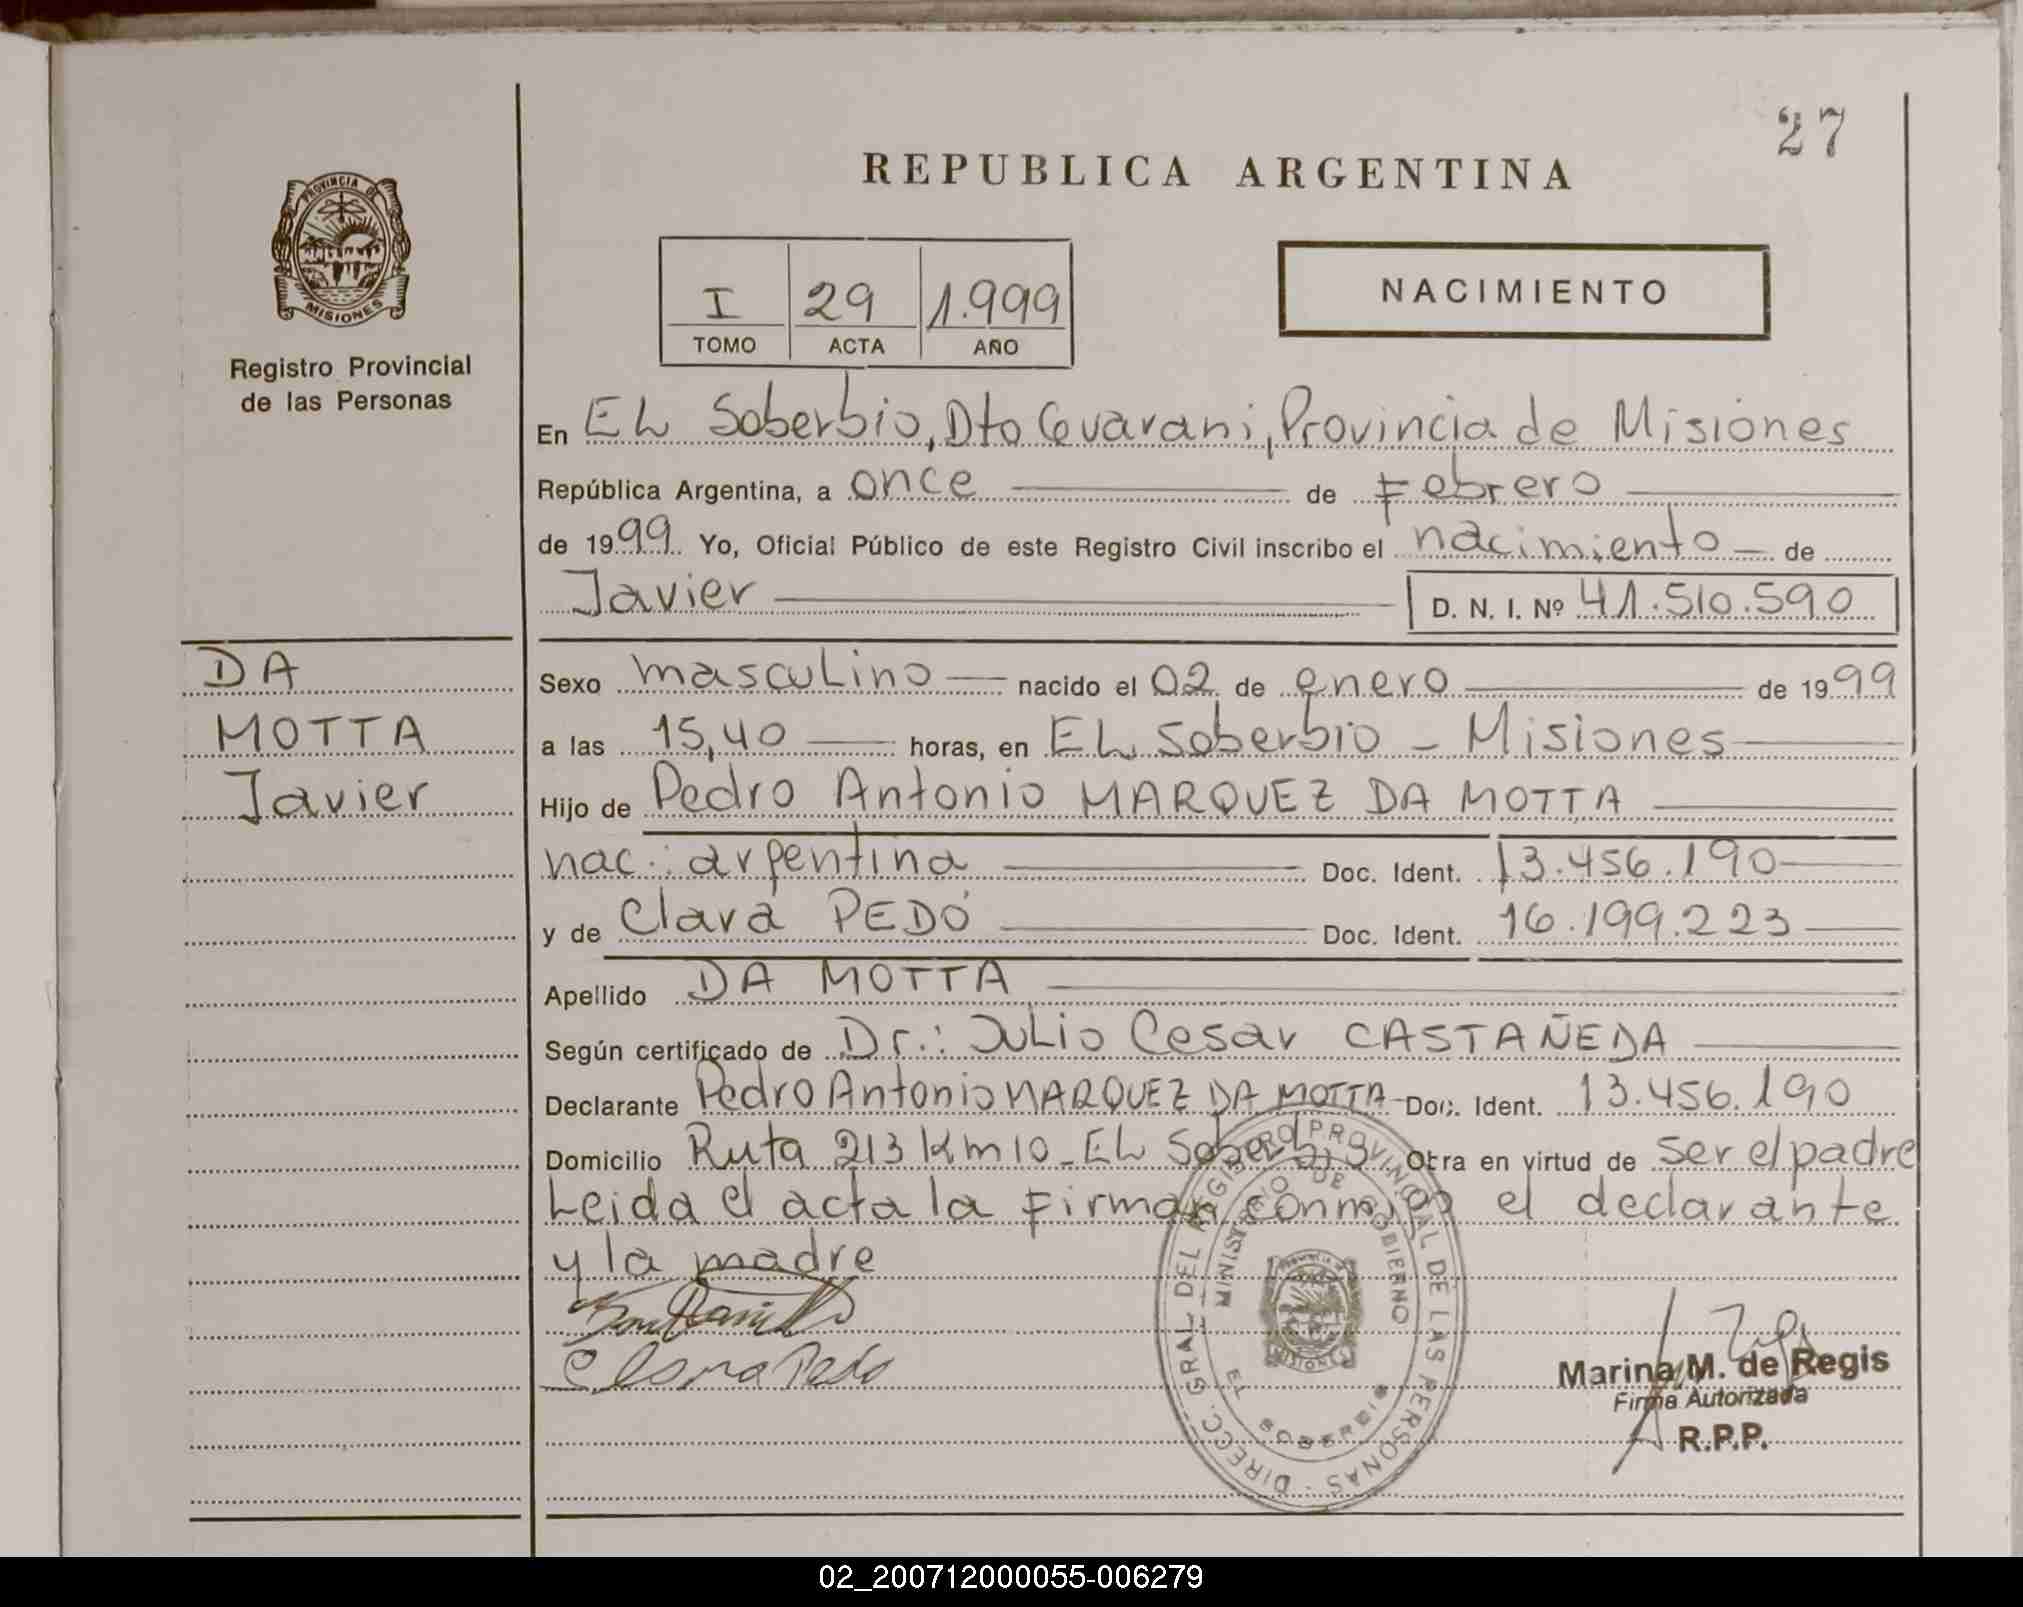 27
REPUBLICA ARGENTINA
PROVINCIA DE
MISIONES
Registro Provincial
de las Personas
I 29 1.999
TOMO ACTA AÑO
NACIMIENTO
En EL Soberbio, Dto Guarani, Provincia de Misiones
República Argentina, a once de Febrero
de 1999 Yo, Oficial Público de este Registro Civil inscribo el nacimiento de
Javier D. N. I. Nº 41.510.590
DA
MOTTA
Javier
Sexo masculino nacido el 02 de enero de 1999
a las 15,40 horas, en EL Soberbio - Misiones
Hijo de Pedro Antonio MARQUEZ DA MOTTA
nac.: argentina Doc. Ident. 13.456.190
y de Clara PEDÓ Doc. Ident. 16.199.223
Apellido DA MOTTA
Según certificado de Dr.: Julio Cesar CASTAÑEDA
Declarante Pedro Antonio MARQUEZ DA MOTTA Doc. Ident. 13.456.190
Domicilio Ruta 213 Km 10 - EL Soberbio Obra en virtud de ser el padre
Leida el acta la firman conmigo el declarante
y la madre
Clara Pedo
DIRECC. GRAL DEL REGISTRO PROVINCIAL DE LAS PERSONAS
MINISTERIO DE GOBIERNO
EL SOBERBIO
MISIONES
Marina M. de Regis
Firma Autorizada
R.P.P.
02_200712000055-006279